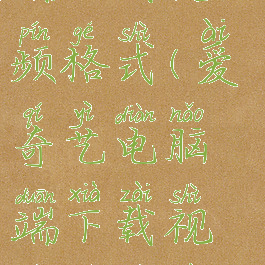 pín gé shì ài
频格式(爱
qí yì diàn nǎo
奇艺电脑
duān xià zài shì
端下载视